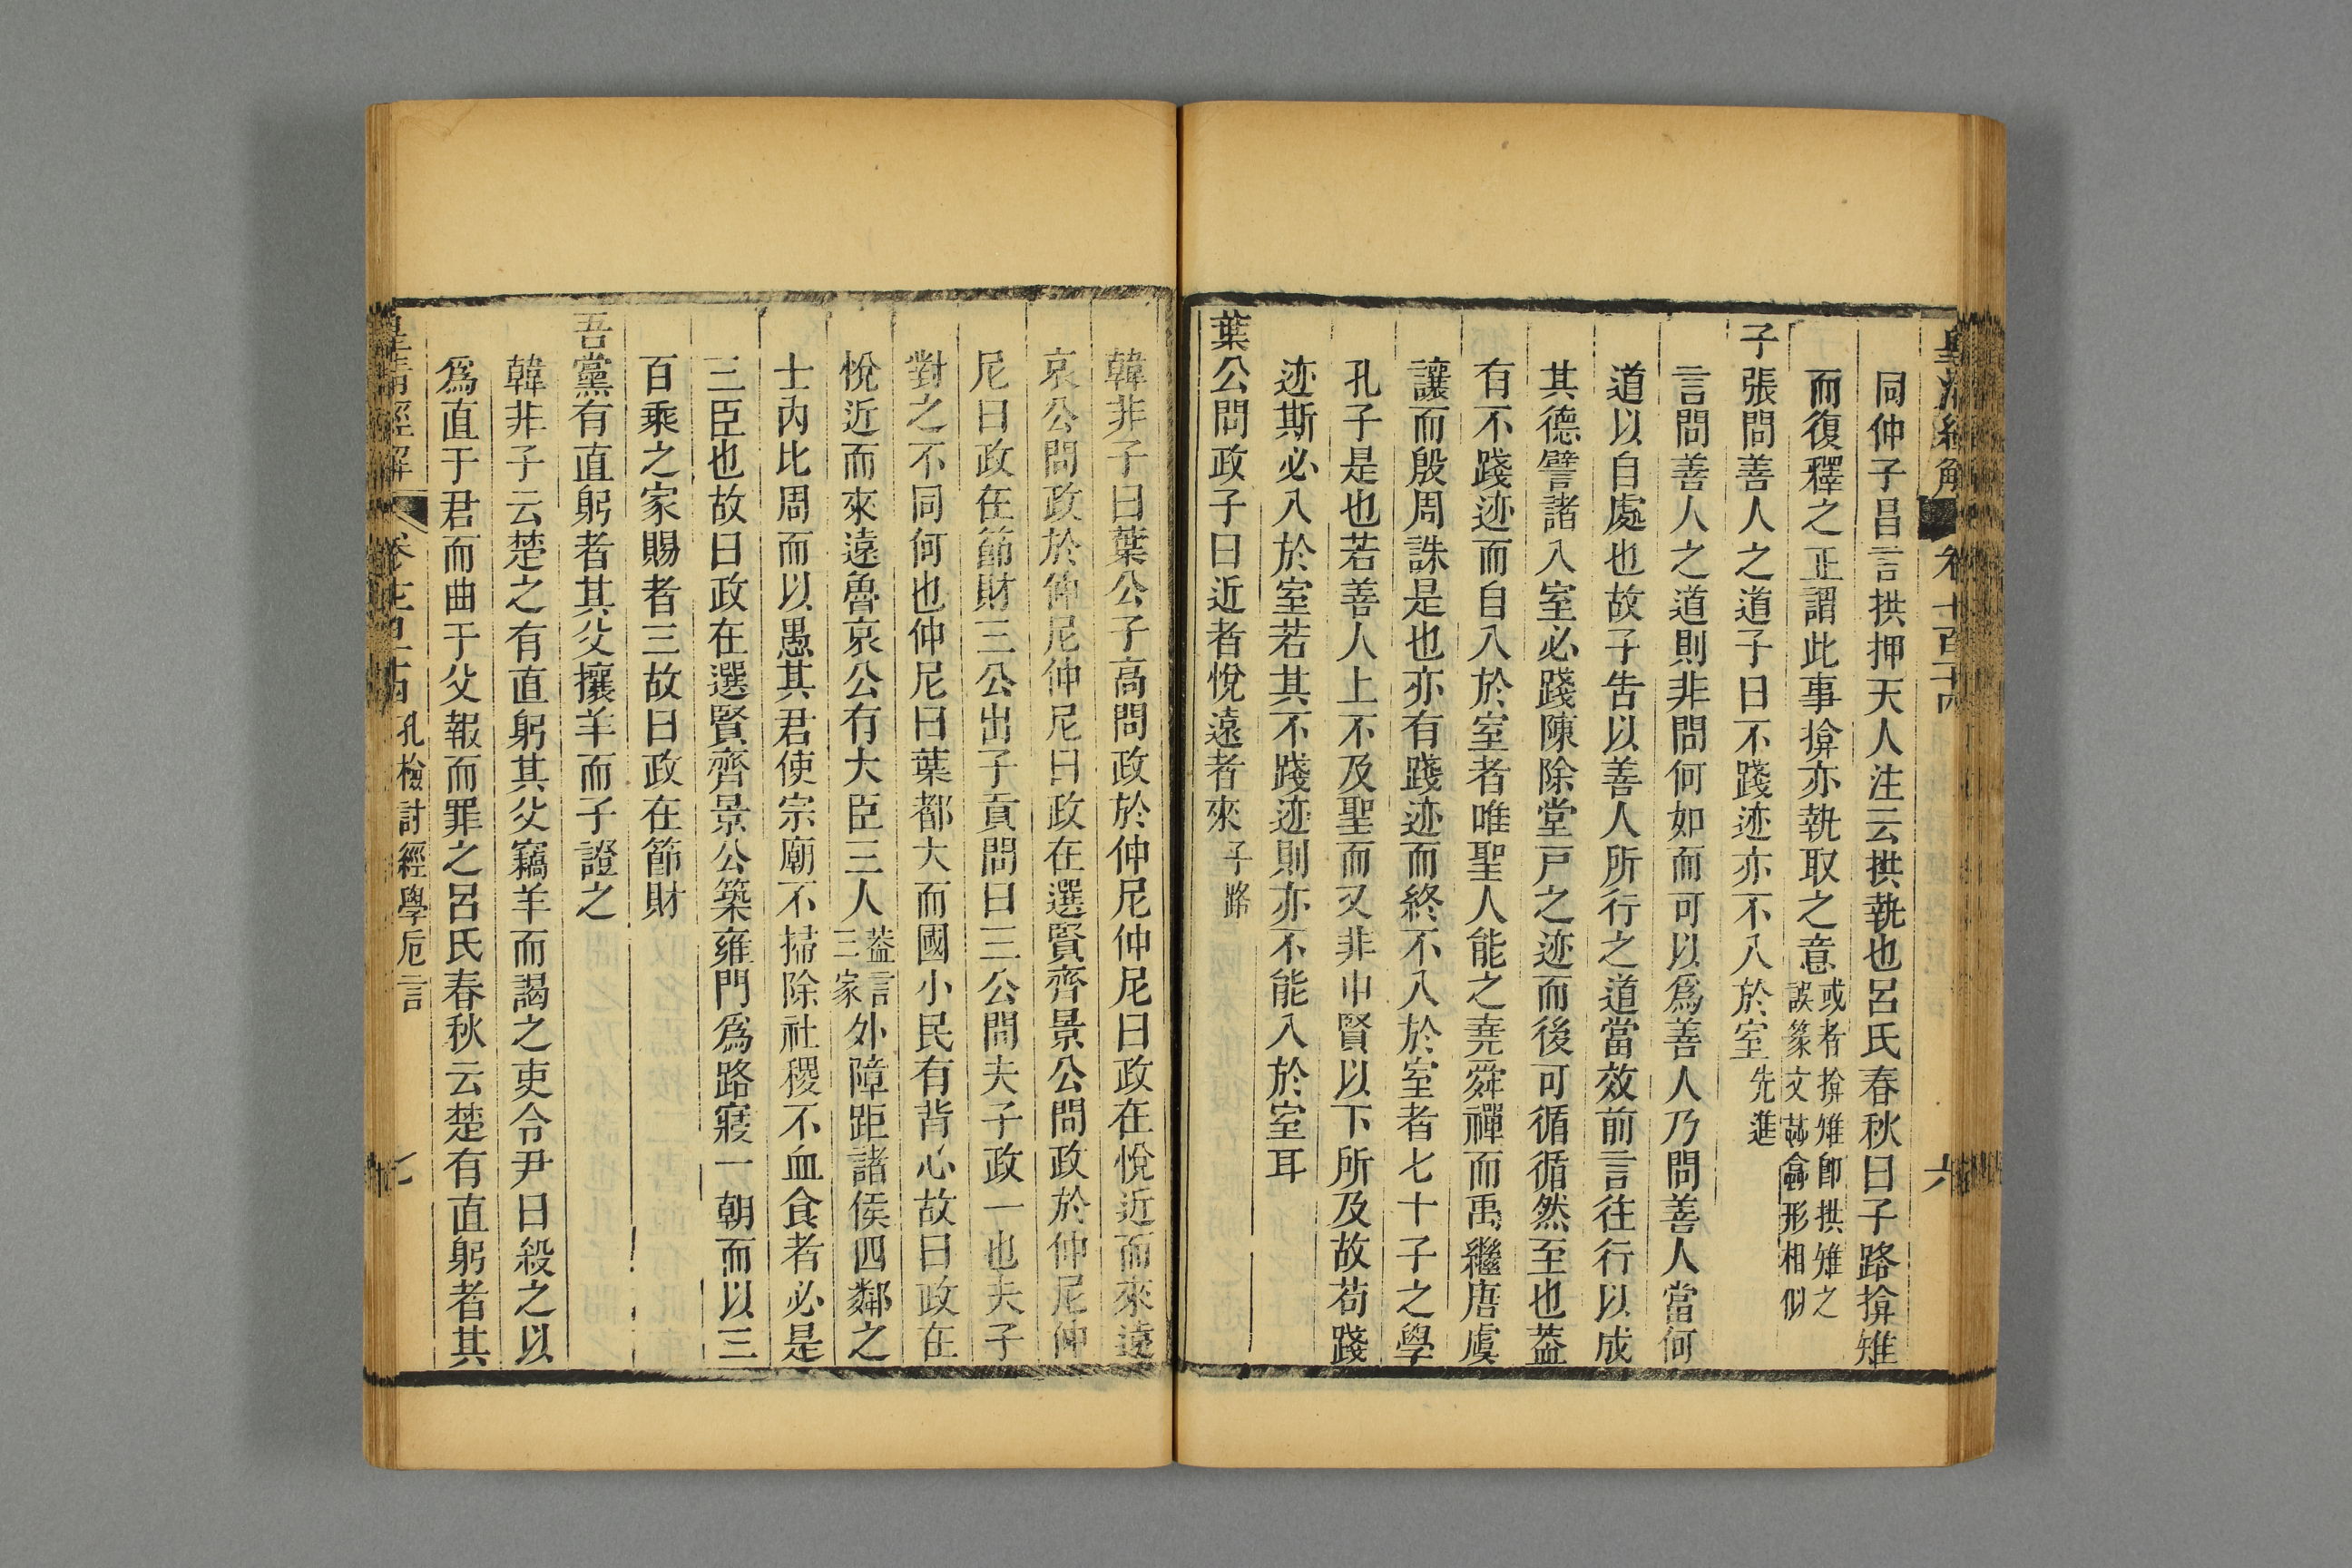 同仲子昌言拱押天人注云拱執也呂氏春秋曰子路揜雉
而復釋之正謂此事揜亦執取之意或者揜雉卽拱雉之
誤篆文𢍏弇形相似
子張問善人之道子曰不踐迹亦不入於室先進
言問善人之道則非問何如而可以爲善人乃問善人當何
道以自處也故子告以善人所行之道當效前言往行以成
其德譬諸入室必踐陳除堂戸之迹而後可循循然至也葢
有不踐迹而自入於室者唯聖人能之堯舜禪而禹繼唐虞
讓而殷周誅是也亦有踐迹而終不入於室者七十子之學
孔子是也若善人上不及聖而又非中賢以下所及故苟踐
迹斯必入於室若其不踐迹則亦不能入於室耳
葉公問政子曰近者悅遠者來子路
韓非子曰葉公子高問政於仲尼仲尼曰政在悅近而來遠
哀公問政於仲尼仲尼曰政在選賢齊景公問政於仲尼仲
尼曰政在節財三公出子貢問曰三公問夫子政一也夫子
對之不同何也仲尼曰葉都大而國小民有背心故曰政在
悅近而來遠魯哀公有大臣三人葢言三家外障距諸侯四鄰之
士內比周而以愚其君使宗廟不掃除社稷不血食者必是
三臣也故曰政在選賢齊景公築雍門爲路寢一朝而以三
百乘之家賜者三故曰政在節財
吾黨有直躬者其父攘羊而子證之
韓非子云楚之有直躬其父竊羊而謁之吏令尹曰殺之以
爲直于君而曲于父報而罪之呂氏春秋云楚有直躬者其
皇淸經解
孔檢討經學卮言